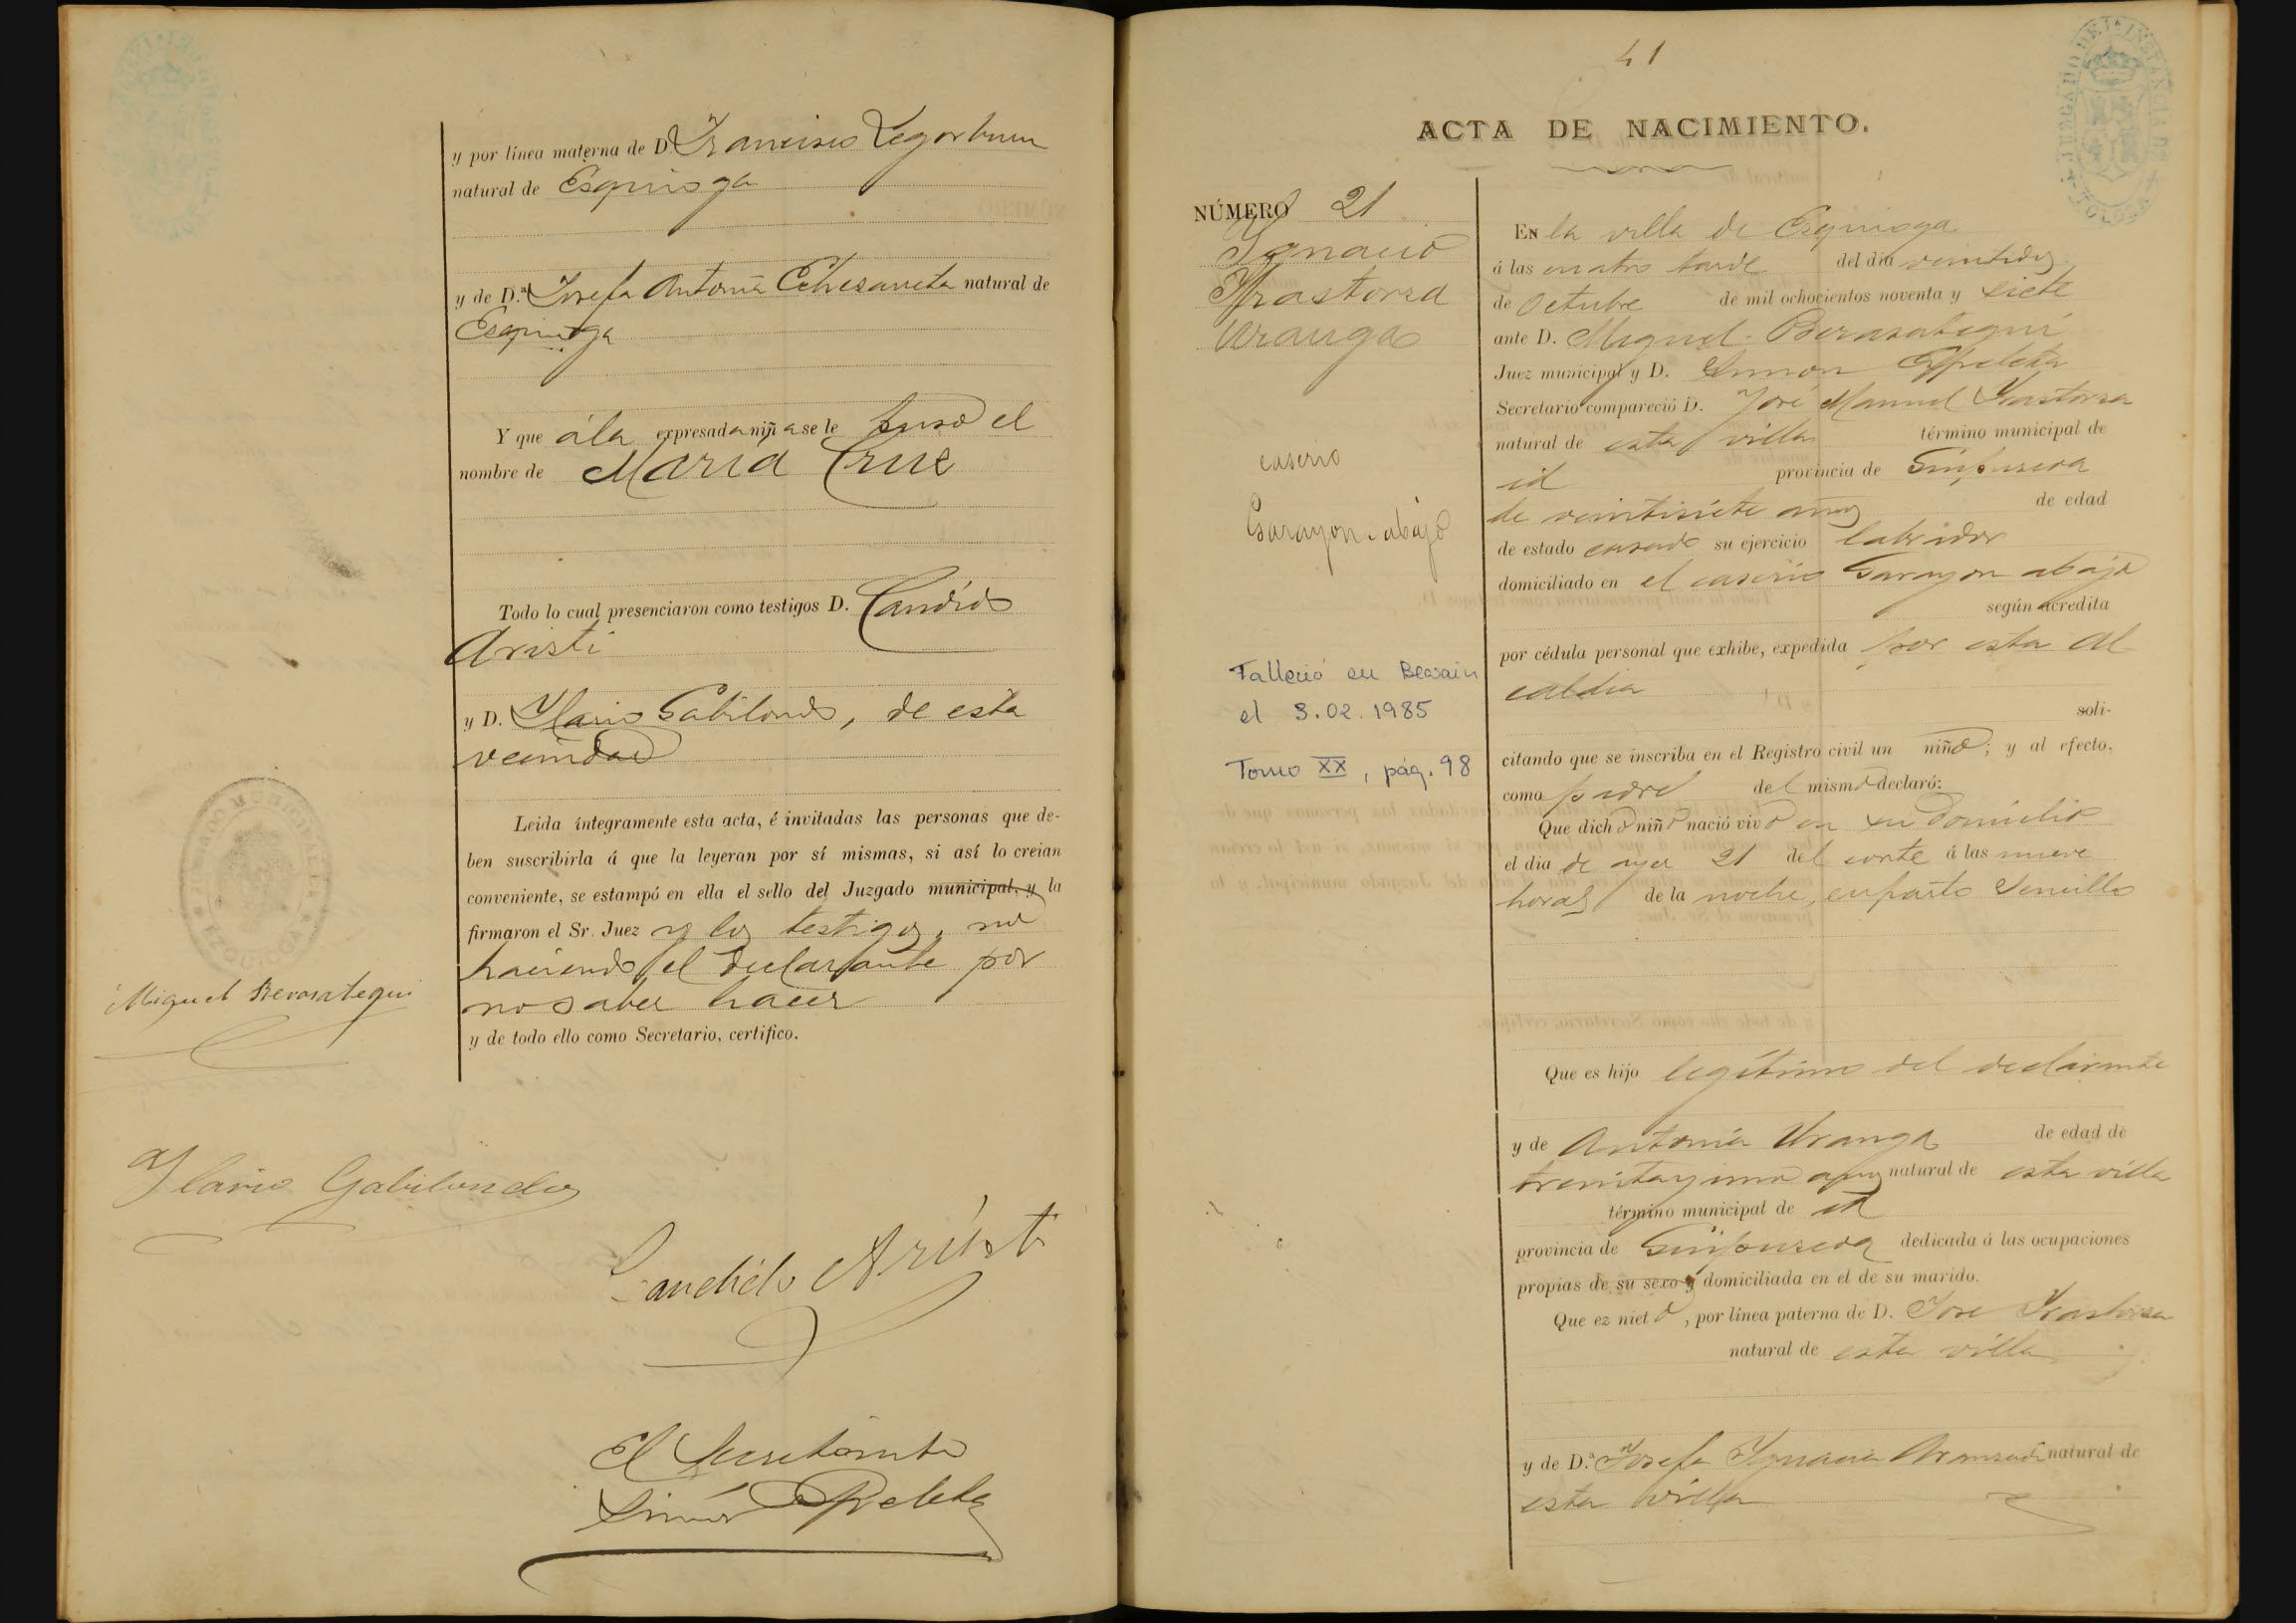 y por línea materna de D. Francisco Legorburu
natural de Esquioga
y de D.ª Josefa Antonia Echezarreta natural de
Esquioga
Y que á la expresada niña se le puso el
nombre de María Cruz
Todo lo cual presenciaron como testigos D. Candido
Aristi
y D. Ylario Gabilondo, de esta
vecindad
Leida íntegramente esta acta, é invitadas las personas que de-
ben suscribirla á que la leyeran por sí mismas, si así lo creian
conveniente, se estampó en ella el sello del Juzgado municipal, y la
firmaron el Sr. Juez y los testigos, no
haciendo el declarante por
no saber hacer
y de todo ello como Secretario, certifico.
Miguel Berasategui
Ylario Gabilondo
Candido Aristi
El Secretario
Simón Ezpeleta
41
ACTA DE NACIMIENTO.
NÚMERO 21
Ygnacio
Yrastorza
Uranga
caserio
Garayon-abajo
Falleció en Beasain
el 3.02.1985
Tomo XX, pág. 98
En la villa de Esquioga
á las cuatro tarde del dia veintidos
de Octubre de mil ochocientos noventa y siete
ante D. Miguel Berasategui
Juez municipal y D. Simon Ezpeleta
Secretario compareció D. José Manuel Yrastorza
natural de esta villa término municipal de
id provincia de Guipuzcoa
de veintisiete años de edad
de estado casado su ejercicio labrador
domiciliado en el caserio Garayon abajo
según acredita
por cédula personal que exhibe, expedida por esta Al-
caldia
soli-
citando que se inscriba en el Registro civil un niño; y al efecto,
como padre del mismo declaró:
Que dicho niño nació vivo en su domicilio
el dia de ayer 21 del corte á las nueve
horas de la noche, en parto sencillo
Que es hijo legítimo del declarante
y de Antonia Uranga de edad de
treinta y uno años natural de esta villa
término municipal de id
provincia de Guipuzcoa dedicada á las ocupaciones
propias de su sexo y domiciliada en el de su marido.
Que ez nieto, por línea paterna de D. Jose Yrastorza
natural de esta villa
y de D.ª Josefa Ygnacia natural de
esta villa